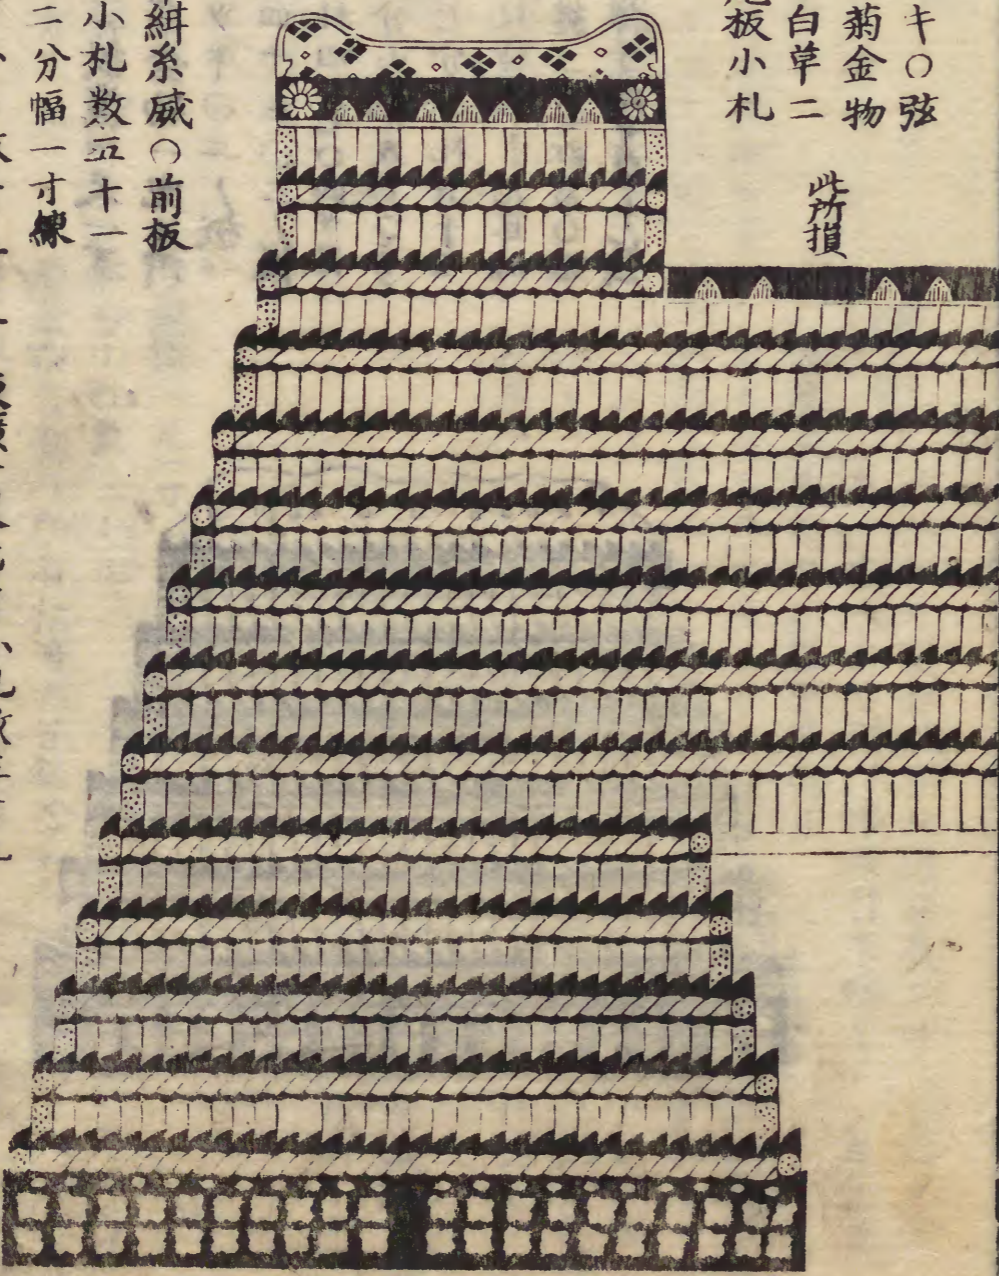 キ○弦
菊金物
白草二
板小札
此所損
緋糸威○前板
小札数五十一
二分幅一寸練